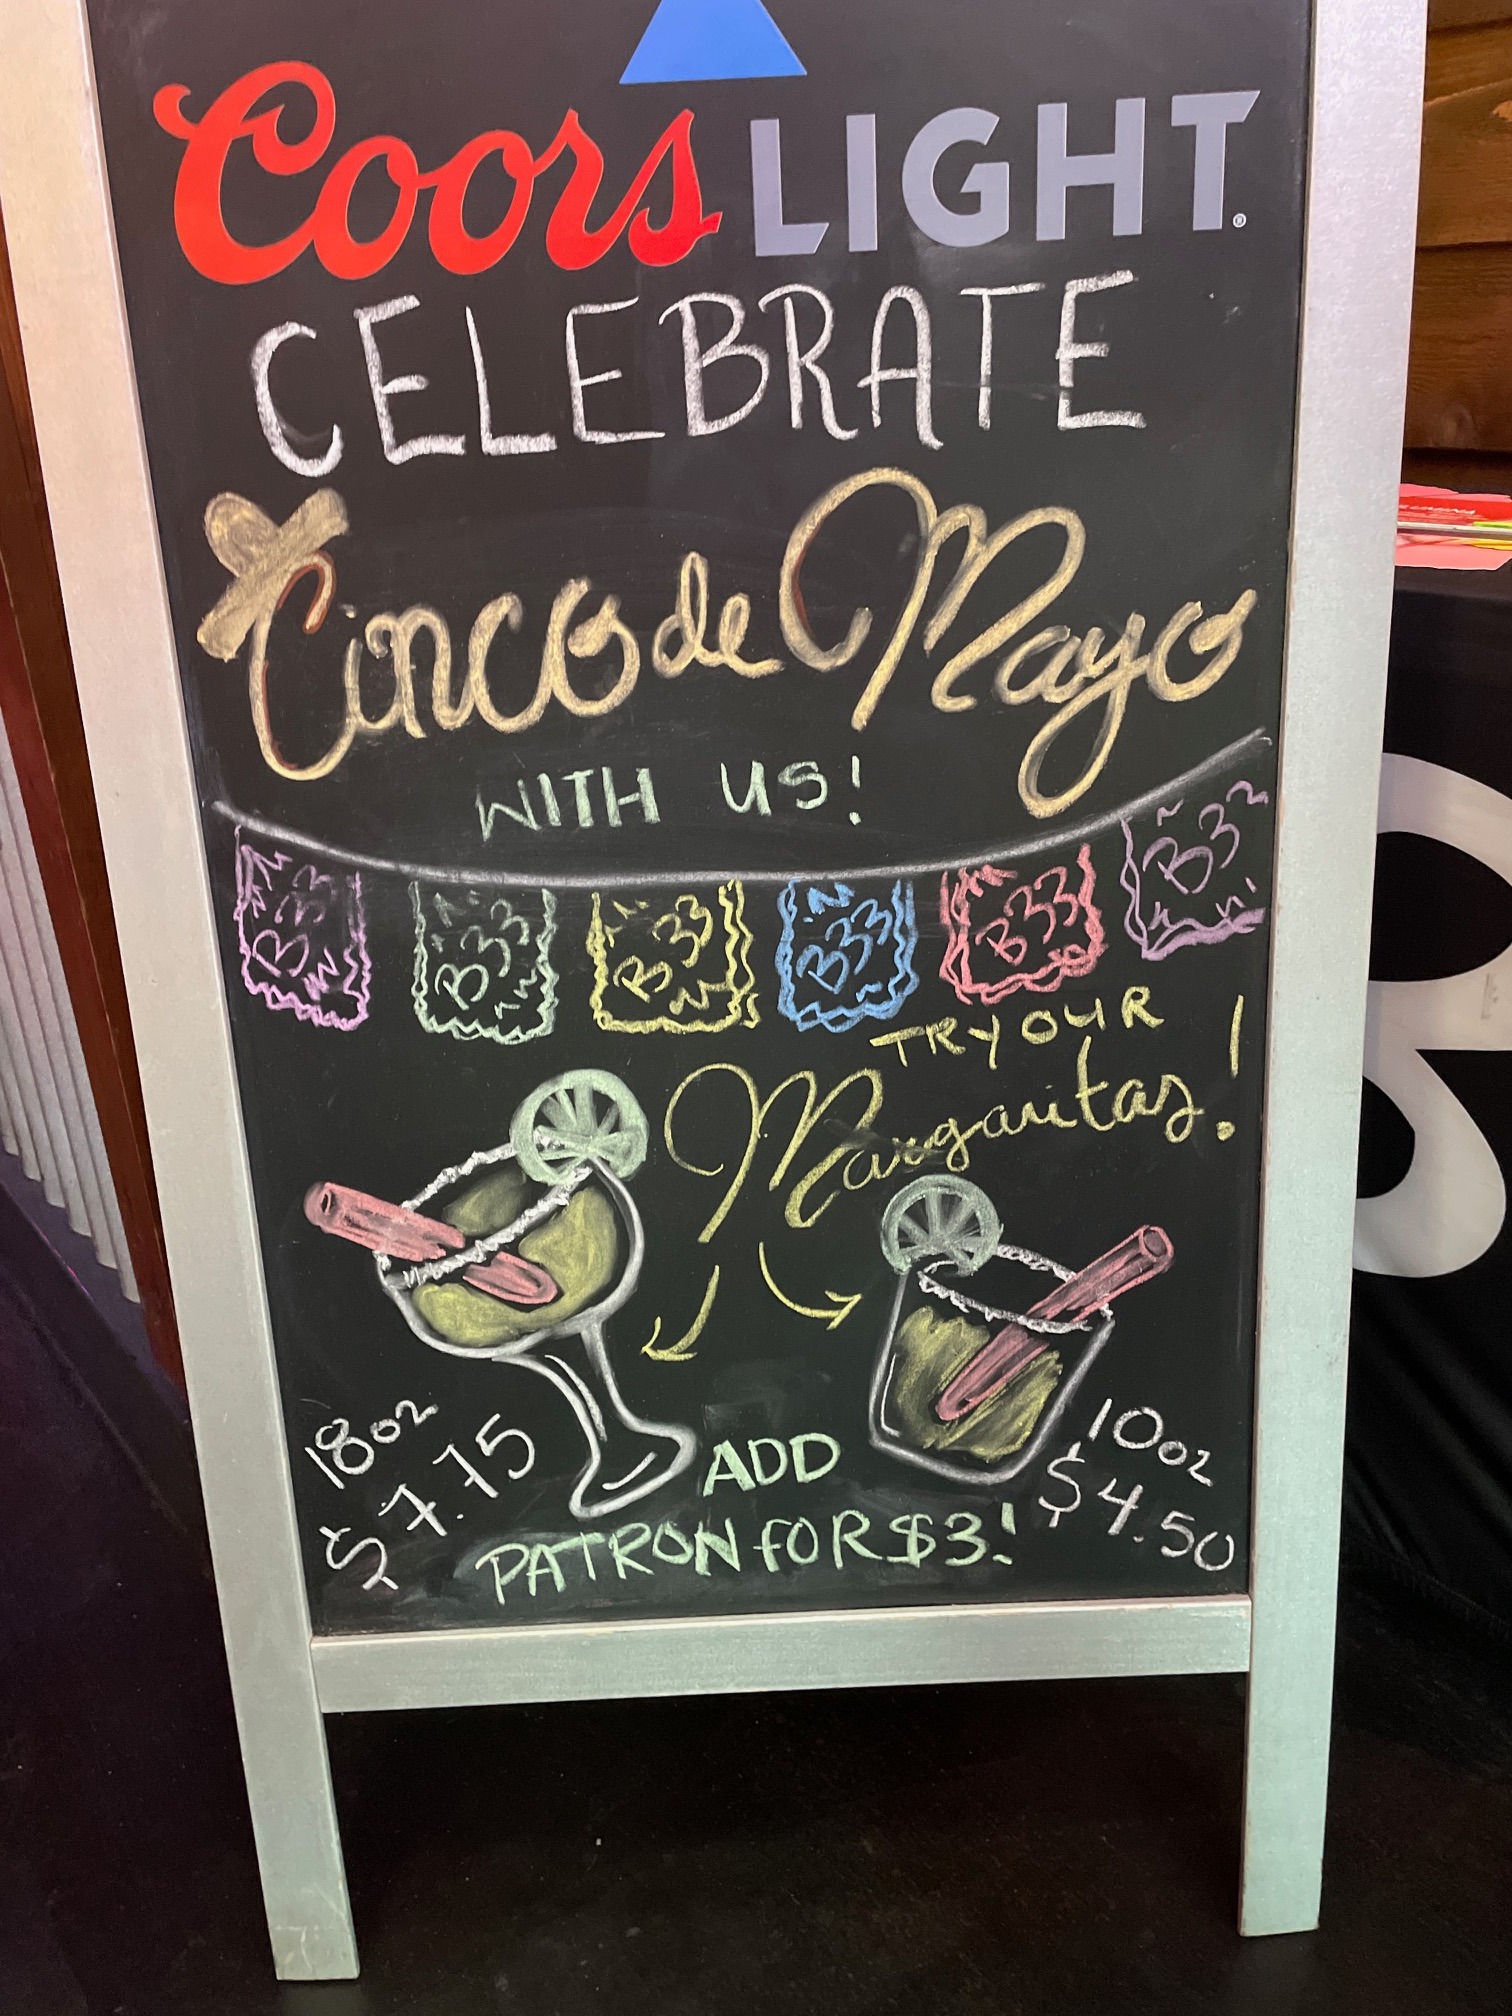 Coors LIGHT®
CELEBRATE
Cinco de Mayo
WITH US!
B33 B33 B33 B33 B33 B33
TRY OUR
Margaritas!
18oz
$7.75
10oz
$4.50
ADD
PATRON FOR $3!